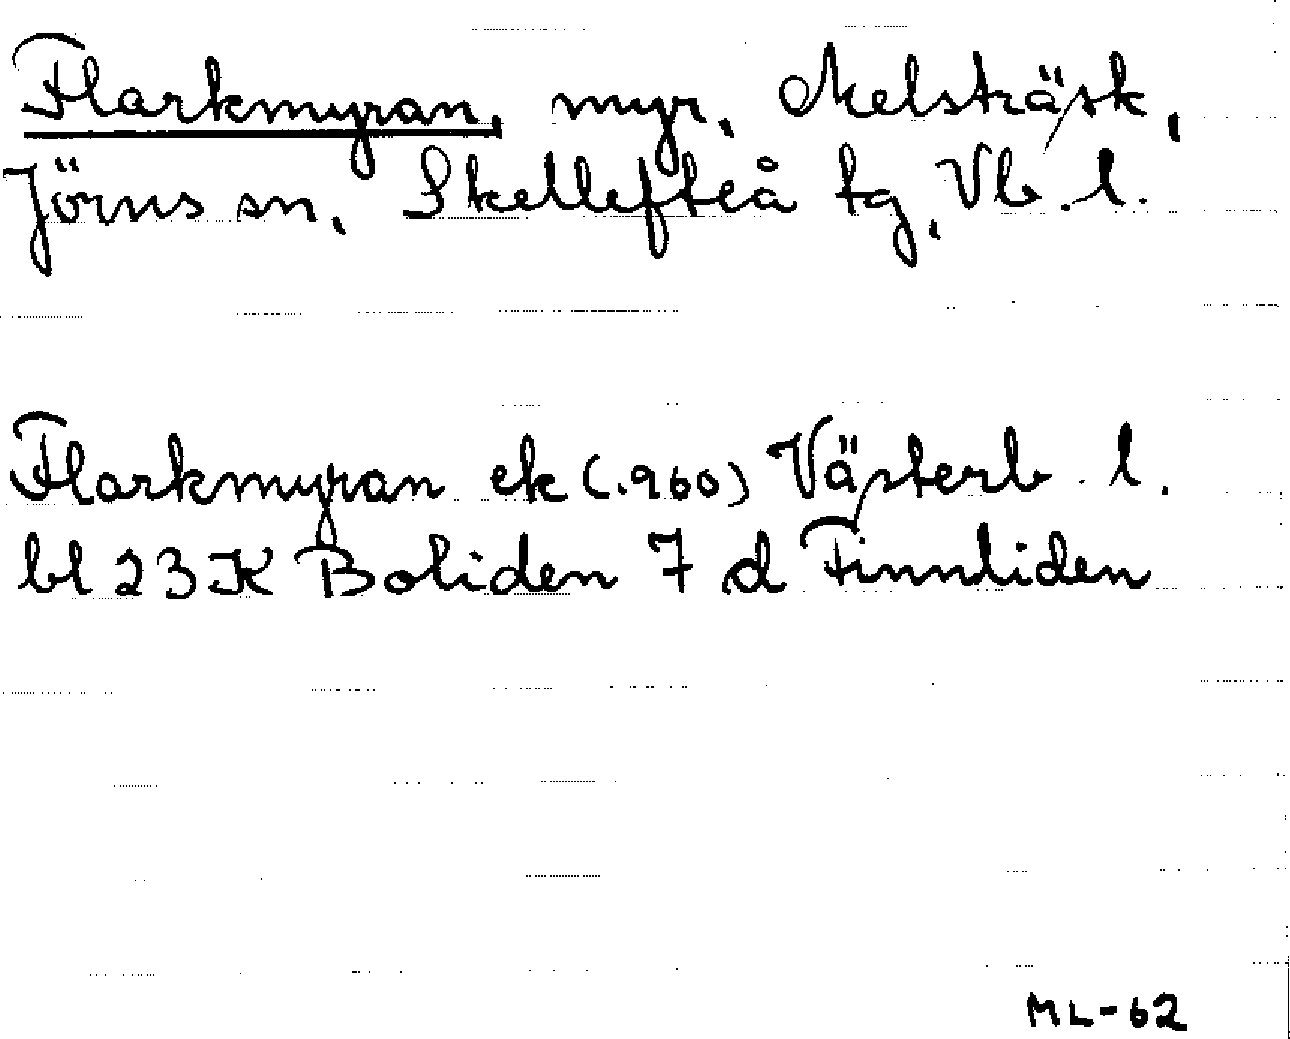 Flarkmyran, myr, Melsträsk,
Jörns sn, Skellefteå tg, Vb. l.
Flarkmyran ek (.960) Västerb. l.
bl 23K Boliden 7 d Finnliden
ML-62